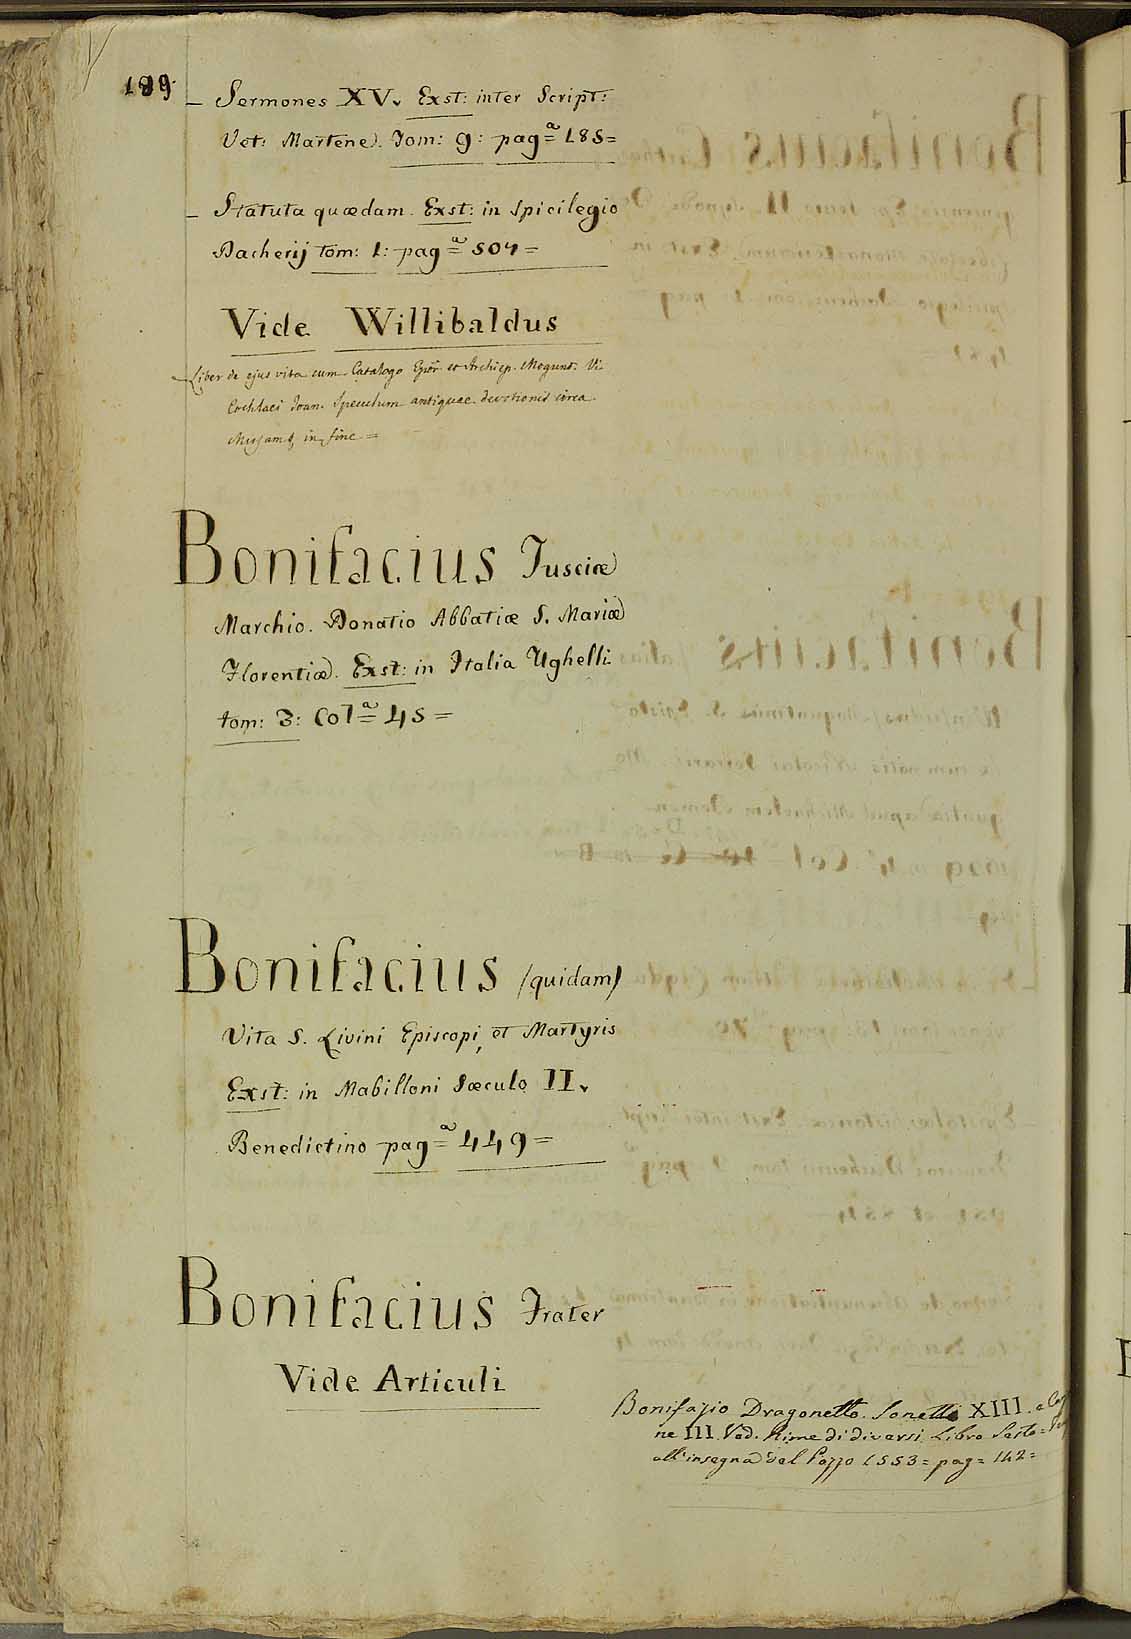 199.
– Sermones XV. Exst: inter Script:
Vet: Martene. Tom: 9: pagª= 185=
– Statuta quædam. Exst: in Spicilegio
Dacherij tom: 1: pagª= 507=
Vide Willibaldus
– Liber de ejus vita cum Catalogo Epõr et Archiep. Mogunt. V:
Cochlaei Joan. Speculum antiquae devotionis circa
Missam &, in fine =
Bonifacius Tusciæ
Marchio. Donatio Abbatiæ S. Mariæ
Florentiæ. Exst: in Italia Ughelli
tom: 3: Colª= 45=
Bonifacius /quidam/
Vita S. Livini Episcopi, et Martyris
Exst: in Mabilloni Sæculo II.
Benedictino pagª= 449=
Bonifacius Frater
Vide Articuli
Bonifazio Dragonetto. Sonetti XIII. e Can
ne III. Ved. Rime di diversi Libro Sesto =
all'insegna del Pozzo 1553= pag= 142=